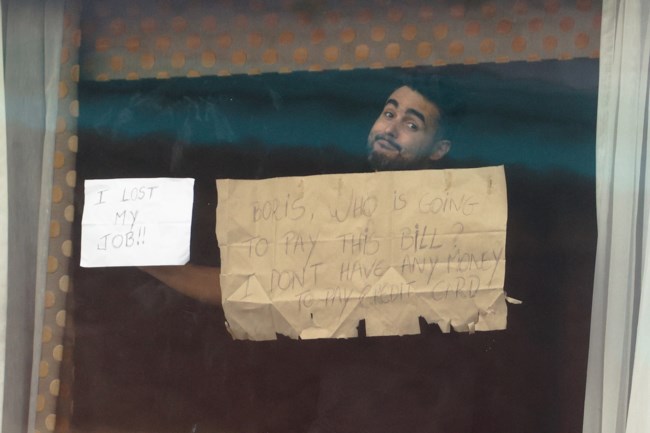 I LOST
MY
JOB!!
BORIS, WHO IS GOING
TO PAY THIS BILL?
I DON'T HAVE ANY MONEY
TO MY CREDIT CARD